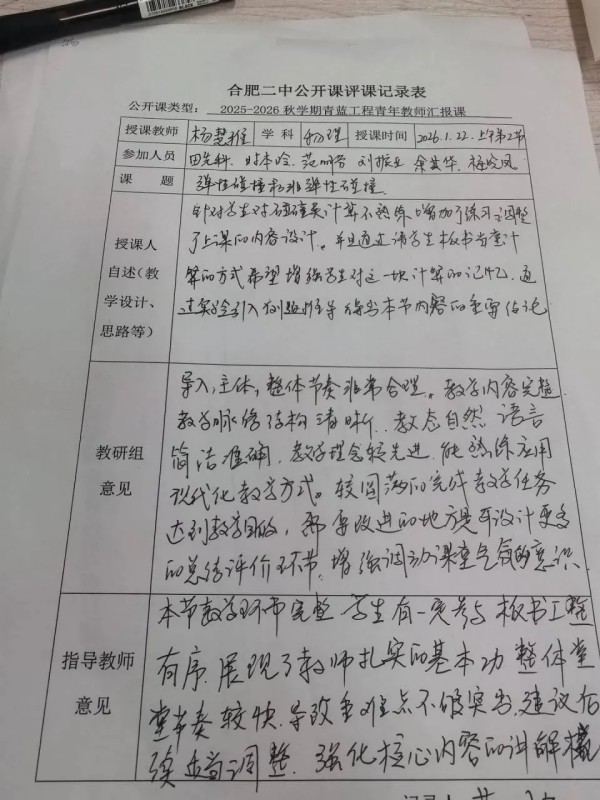 合肥二中公开课评课记录表
公开课类型： 2025-2026 秋学期青蓝工程青年教师汇报课
授课教师 杨慧 学 科 物理 授课时间 2026.1.22.上午第2节
参加人员 刘振业
课 题 弹性碰撞和非弹性碰撞
授课人自述（教学设计、思路等）
针对学生对碰撞类计算不熟练，增加了练习，调整
了上课的内容设计。并且通过请学生板书当堂计
算的方式希望增强学生对这一块计算的记忆，通
过实验引入例题推导得出本节内容的重要结论
教研组意见
导入，主体，整体节奏非常合理。教学内容完整
教学脉络结构清晰、教态自然 语言
简洁准确、教学理念较先进，能熟练应用
现代化教学方式。较圆满的完成教学任务
达到教学目的，需要改进的地方是可设计更多
的总结评价环节，增强调动课堂气氛的意识
指导教师意见
本节教学环节完整 学生有一定参与 板书工整
有序，展现了教师扎实的基本功 整体课
堂节奏较快，导致重难点不够突出，建议后
续适当调整，强化核心内容的讲解